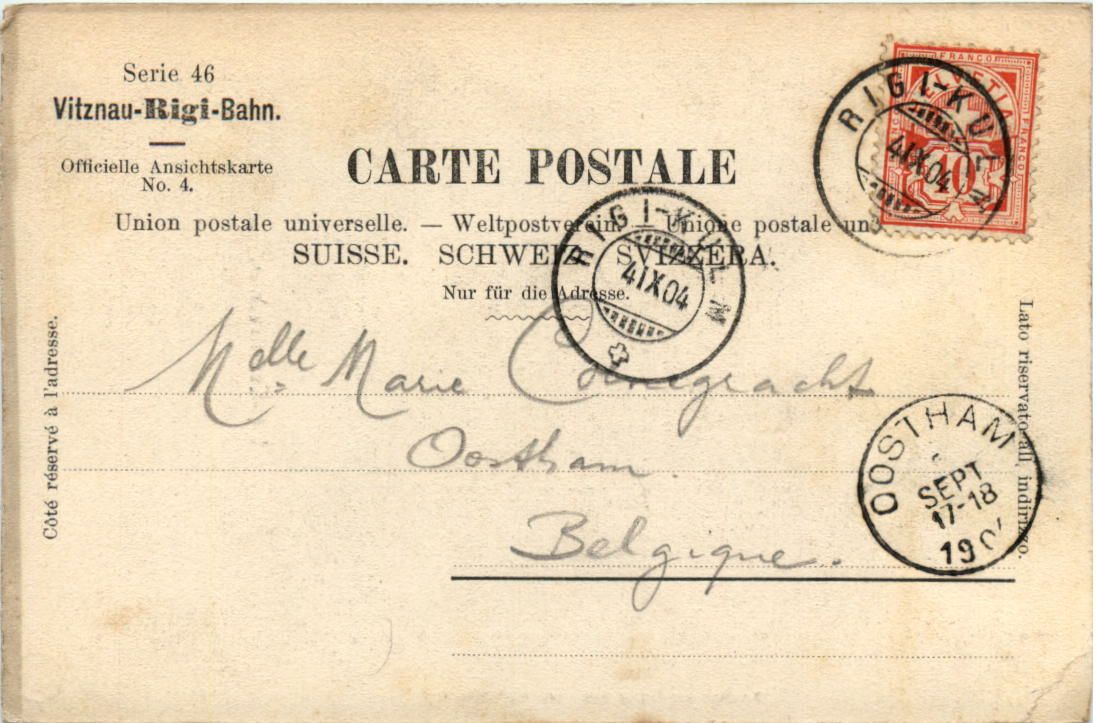 Serie 46
Vitznau-Rigi-Bahn.
Officielle Ansichtskarte
No. 4.
CARTE POSTALE
Union postale universelle. — Weltpostverein. — Unione postale un
SUISSE. SCHWEIZ. SVIZZERA.
Nur für die Adresse.
FRANCO
HELVETIA
FRANCO
10
RIGI-KULM
4 IX 04
RIGI-KULM
4 IX 04
Côté réservé à l'adresse.
Lato riservato all, indirizzo.
Melle Marie
Oostham.
Belgique.
OOSTHAM
SEPT
17-18
190